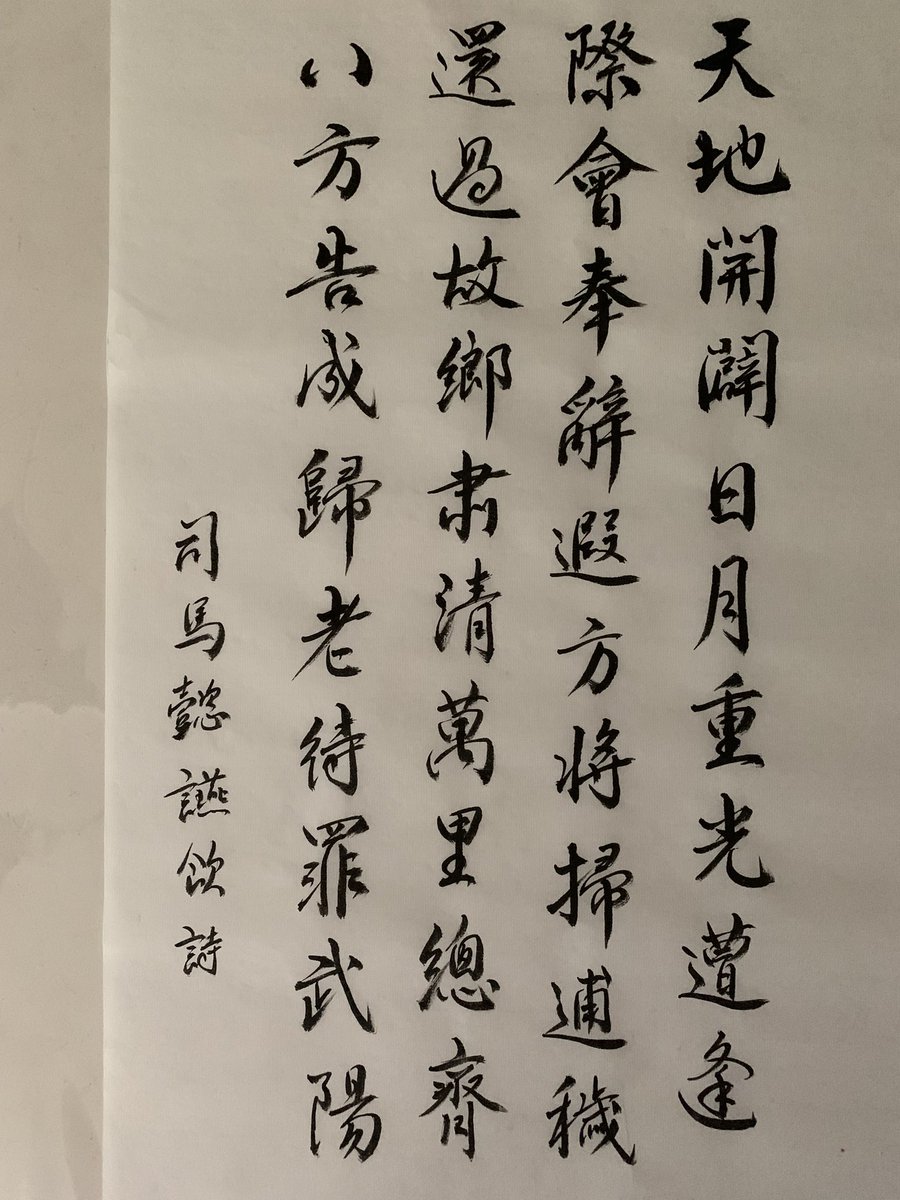 天地開闢日月重光遭逢
際會奉辭遐方將掃逋穢
還過故鄉肅清萬里總齊
八方告成歸老待罪武陽
司馬懿讌飲詩